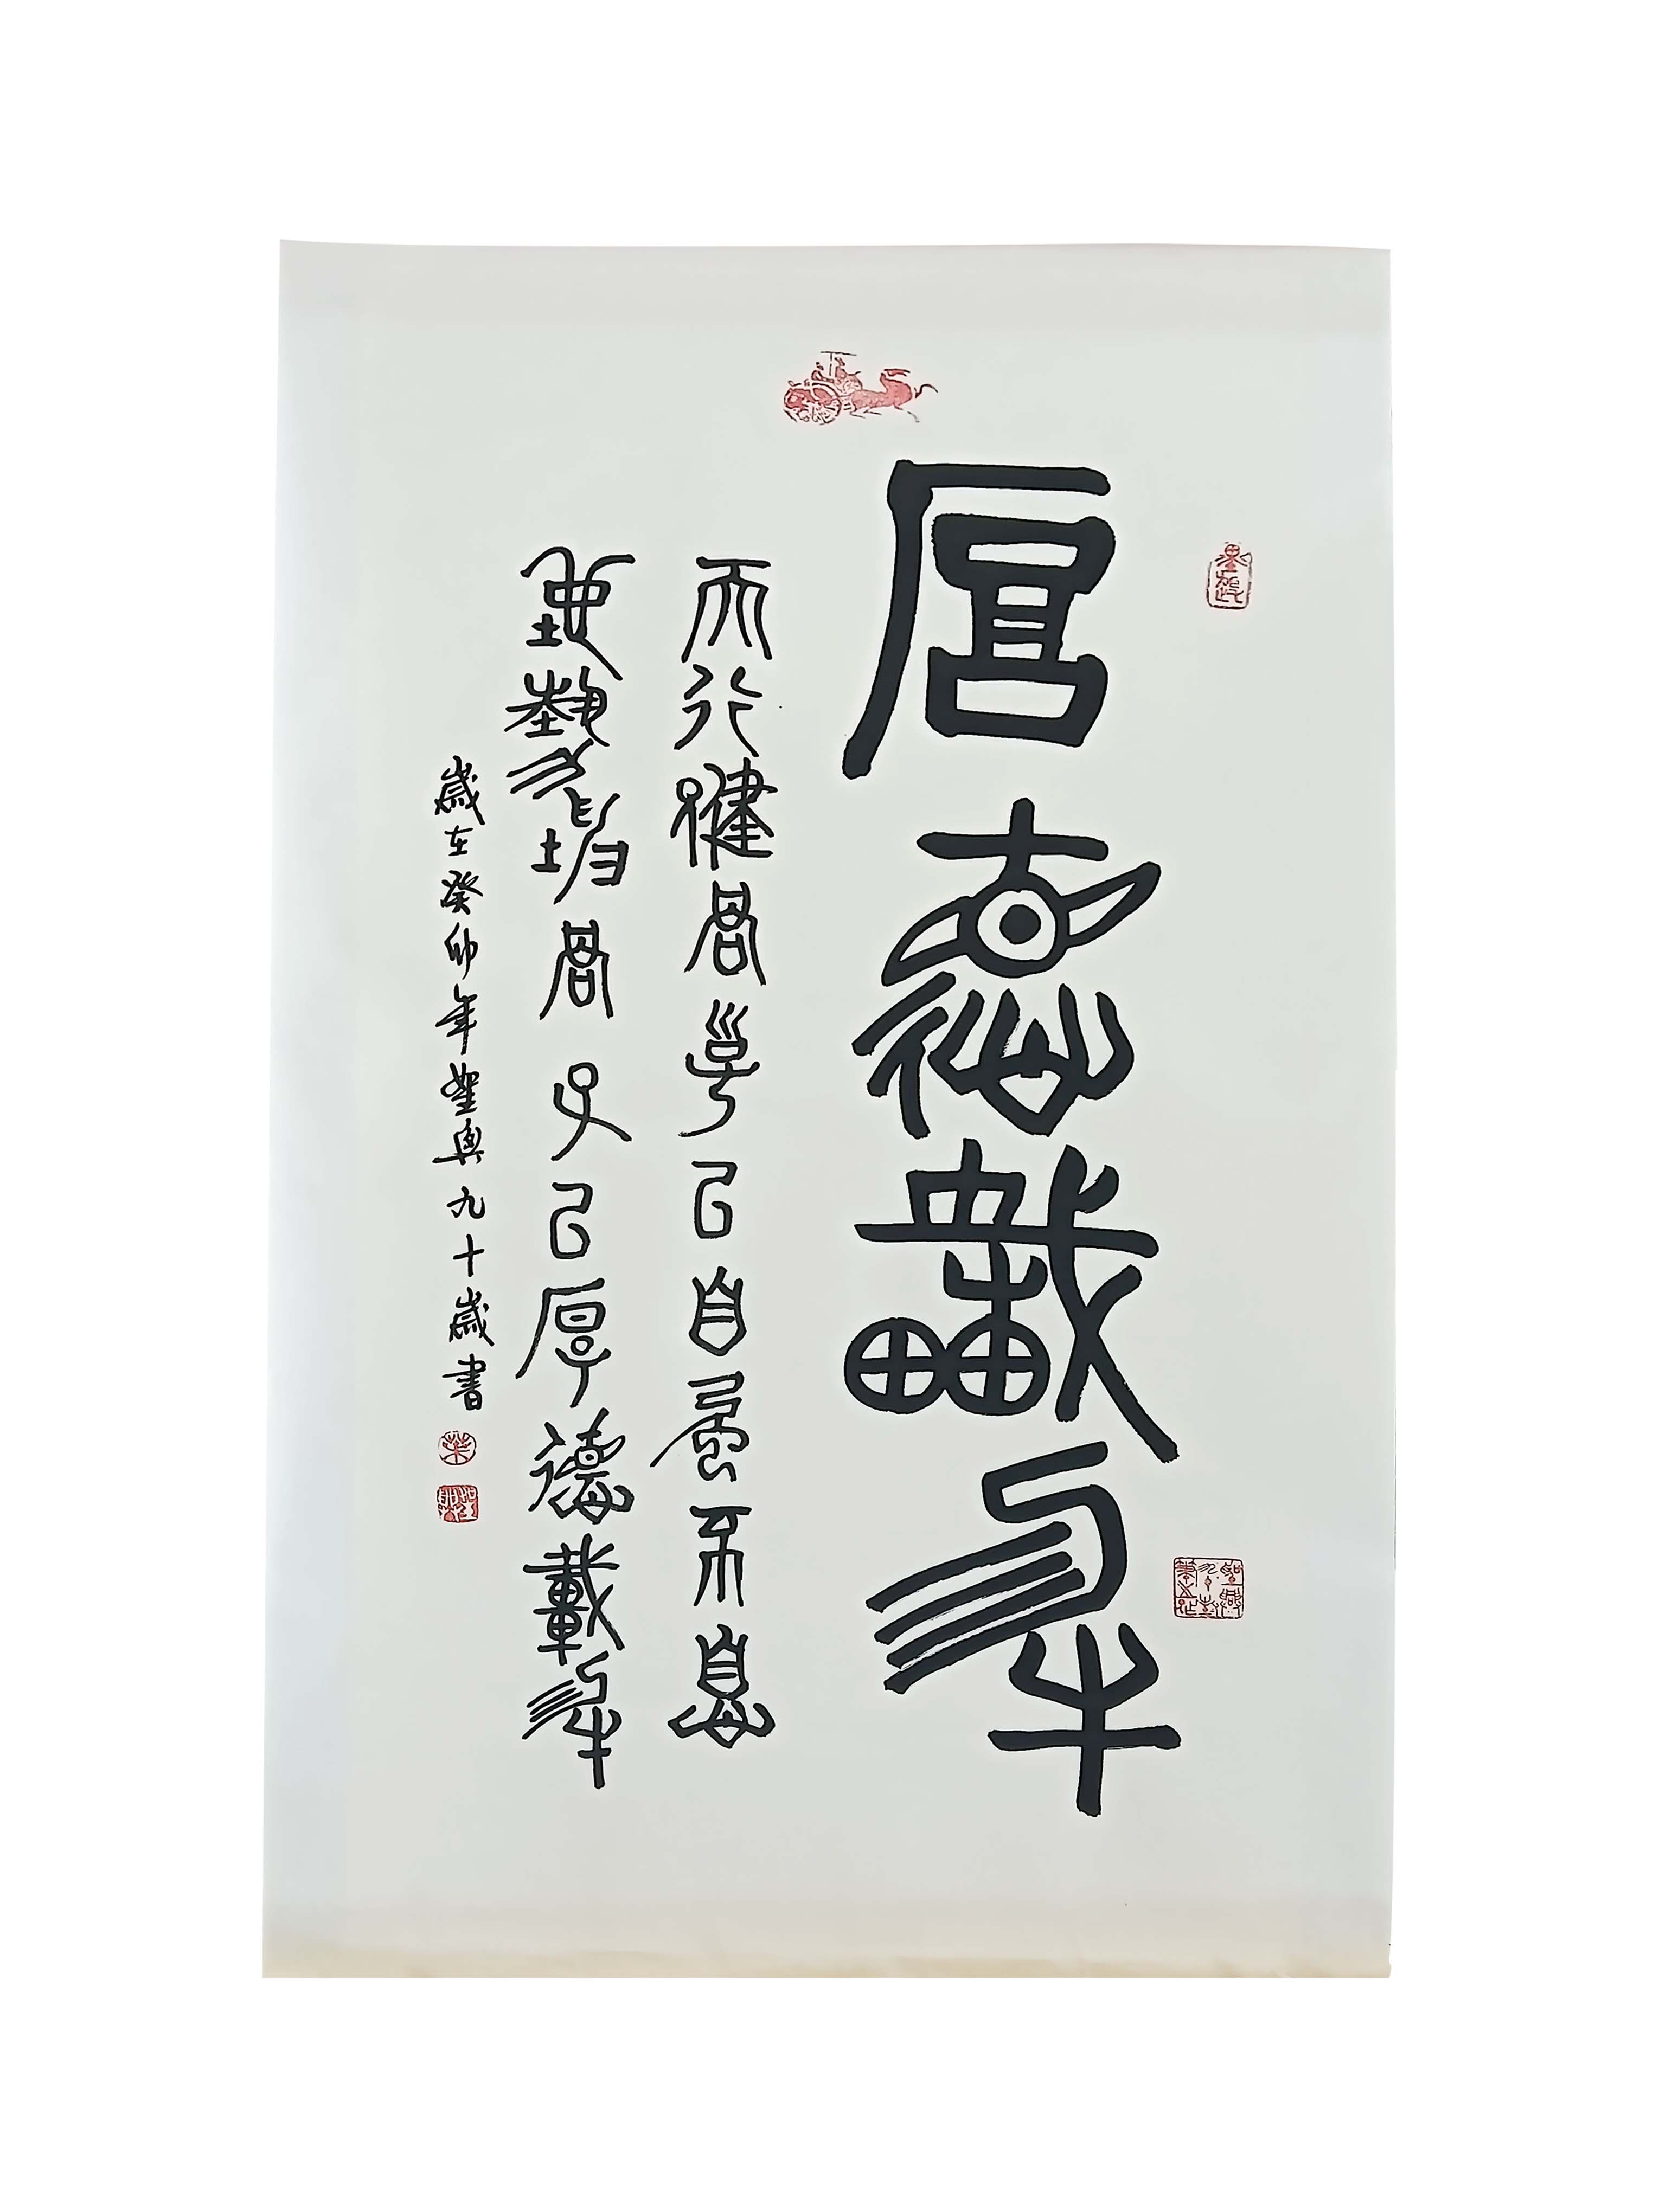 厚德載物
天行健君子以自强不息
地勢坤君子以厚德載物
歲在癸卯年聖九十歲書